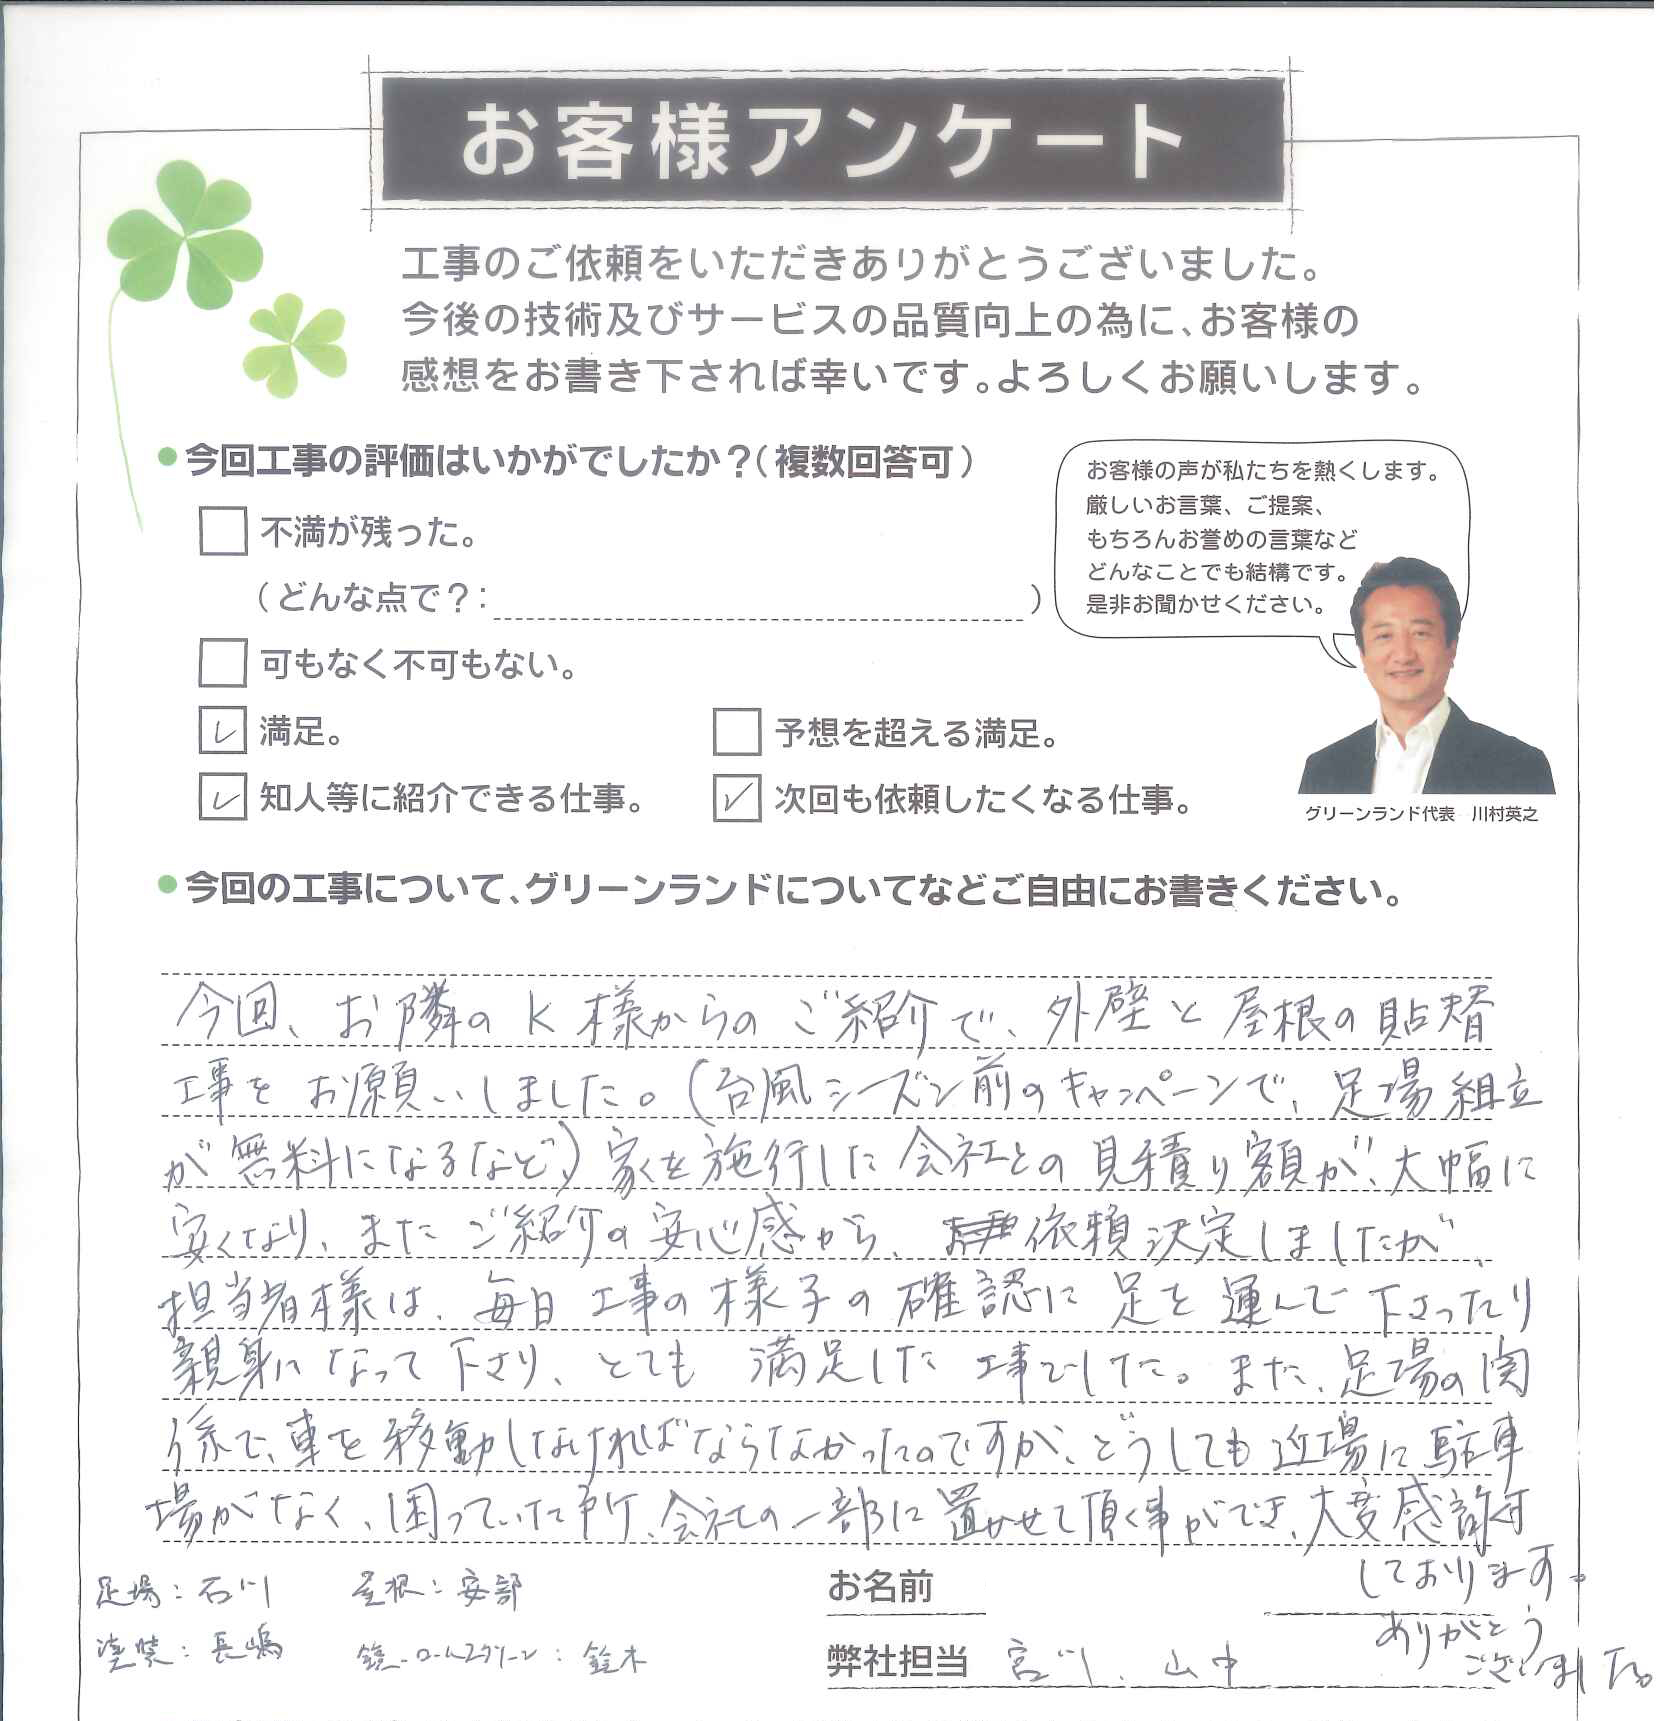 お客様アンケート
工事のご依頼をいただきありがとうございました。
今後の技術及びサービスの品質向上の為に、お客様の
感想をお書き下されば幸いです。よろしくお願いします。
●今回工事の評価はいかがでしたか？（複数回答可）
不満が残った。
（どんな点で？：　）
可もなく不可もない。
満足。
予想を超える満足。
知人等に紹介できる仕事。
次回も依頼したくなる仕事。
お客様の声が私たちを熱くします。
厳しいお言葉、ご提案、
もちろんお誉めの言葉など
どんなことでも結構です。
是非お聞かせください。
グリーンランド代表　川村英之
●今回の工事について、グリーンランドについてなどご自由にお書きください。
今回、お隣のK様からのご紹介で、外壁と屋根の貼替
工事をお願いしました。(台風シーズン前のキャンペーンで、足場組立
が無料になるなど) 家を施行した会社との見積り額が、大幅に
安くなり、またご紹介の安心感から、依頼決定しましたが、
担当者様は、毎日工事の様子の確認に足を運んで下さったり
親身になって下さり、とても満足した工事でした。また、足場の関
係で、車を移動しなければならなかったのですが、どうしても近場に駐車
場がなく、困っていた所、会社の一部に置かせて頂く事ができ、大変感謝
しております。
ありがとう
ございました。
足場：石川　屋根：安部
塗装：長嶋　：鈴木
お名前
弊社担当　宮川、山中